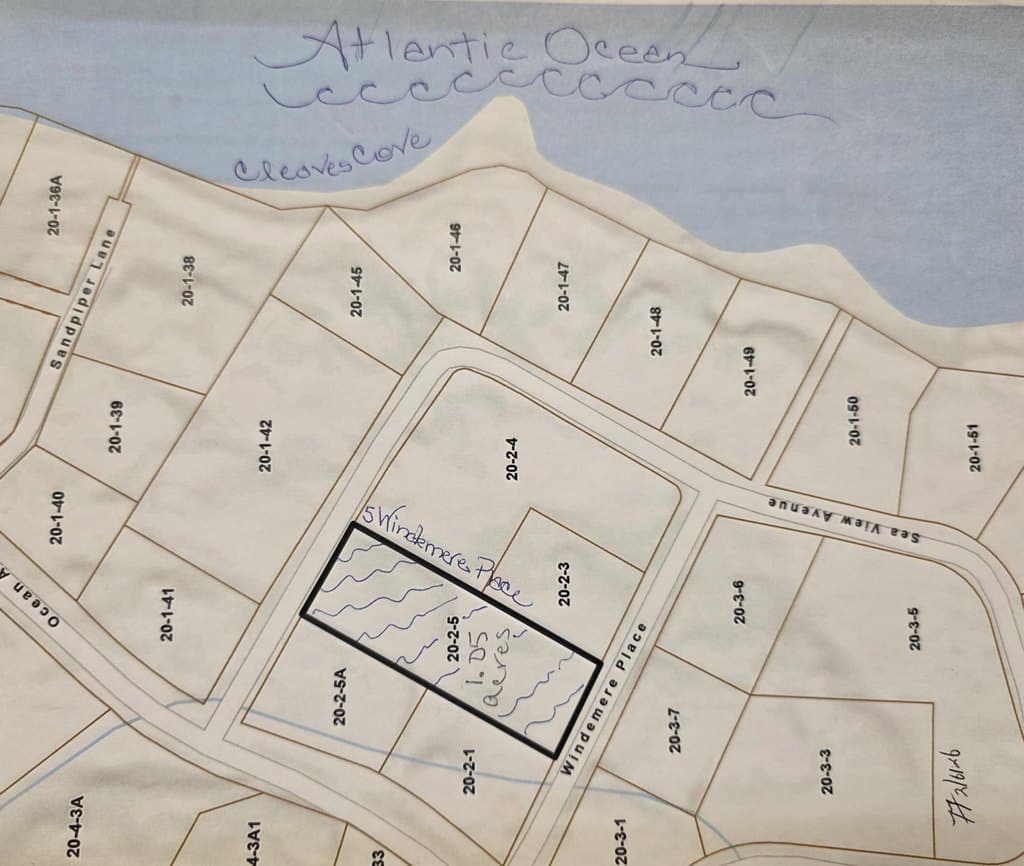 Atlantic Ocean
Cleaves Cove
20-1-36A
Sandpiper Lane
20-1-38
20-1-45
20-1-46
20-1-47
20-1-48
20-1-49
20-1-50
20-1-51
20-1-39
20-1-42
20-2-4
20-1-40
20-1-41
Ocean A
Sea View Avenue
5 Windemere Place
20-2-3
20-2-5
1.05
acres
20-2-5A
20-2-1
Windemere Place
20-3-6
20-3-5
20-3-7
20-3-3
20-3-1
20-4-3A
4-3A1
33